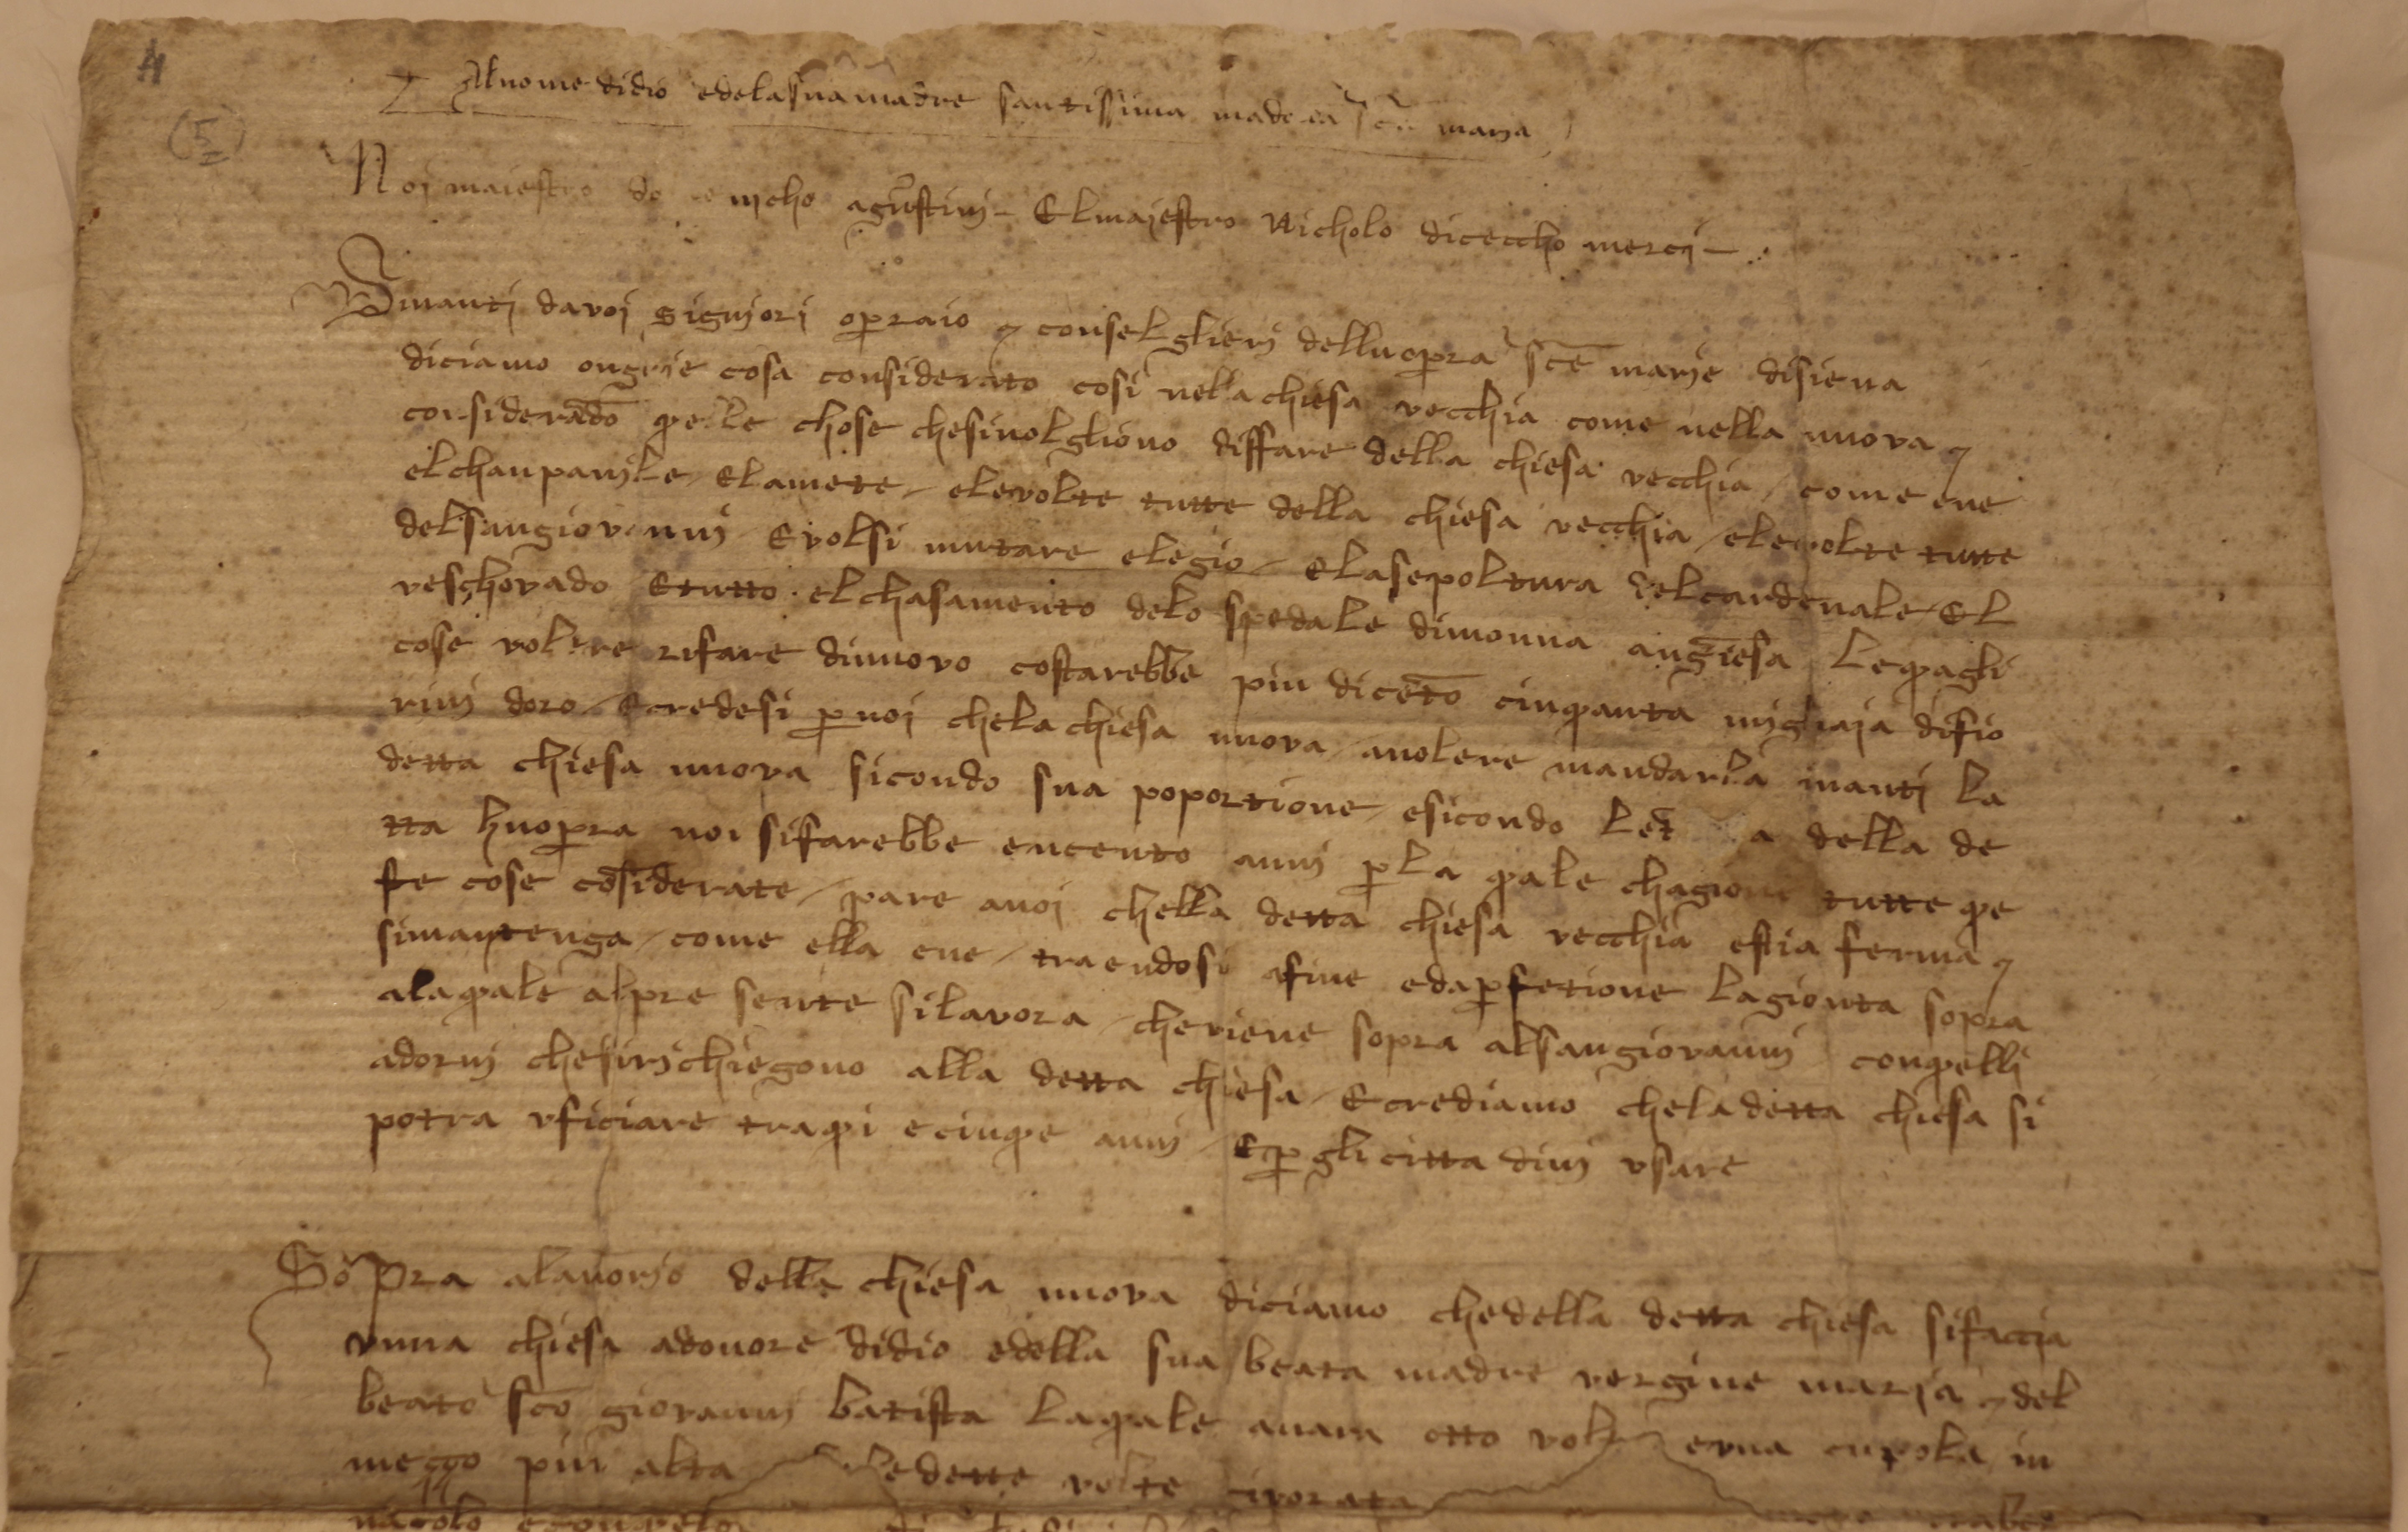 4
(5)
Al nome didio edelasua madre santissima madona sca maria
Noi maiestro do e micho agustini El maiestro Nicholo dicieccho mercij
Dinanti davoi Signiori operaio & conselglieri delluopera sce marie disiena
diciamo ongnie cosa considerato cosi nella chiesa vecchia come nella nuova &
considerādo quelle chose chesivolgliono disffare della chiesa vecchia / come ene
elchanpanile / Elamete / elevolte tutte della chiesa vecchia / elevolte tutte
delsangiovanni Evolsi mutare elegio / Elasepoltura delcardenale / El
veschovado Etutto elchasamento delo spedale dimonna angiesa Lequagli
cose volere rifare dinuovo costarebbe piu diceto cinquanta migliaia difio
rini doro / Ecredesi pnoi chela chiesa nuova / avolere mandarla inanti La
detta chiesa nuova sicondo sua poportione / esicondo Let a della de
tta huopera non sifarebbe encento anni pla quale chagione tutte que
ste cose cosiderate / pare anoi chella detta chiesa vecchia estia ferma &
simantenga / come ella ene / traendosi afine edapfetione Lagionta sopra
alaquale alpre sente silavora / cheviene sopra alsangiovanni conquelli
adorni chesirichiegono alla detta chiesa / Ecrediamo cheladetta chiesa si
potra vficiare traqui ecinque anni / Ep gli citta dini vsare
Sopra alavorio della chiesa nuova diciamo chedella detta chiesa sifaccia
vnna chiesa adonore didio edella sua beata madre vergine maria & del
beato sco giovanni batista Laquale avara otto volte evna cupola in
meçço piu alta ledette volte